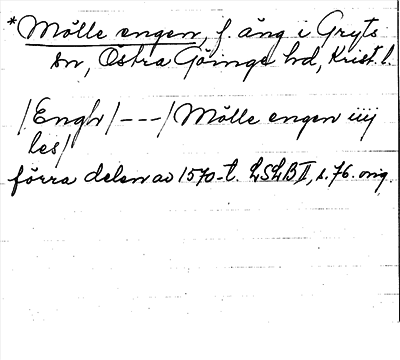 *Mölle engen, f. äng i Gryts
sn, Östra Göinge hd, Krist. l.
/Engh/---/Mölle engen iiij
les/
förra delen av 1570-t. LSLB II, s. 76. orig.